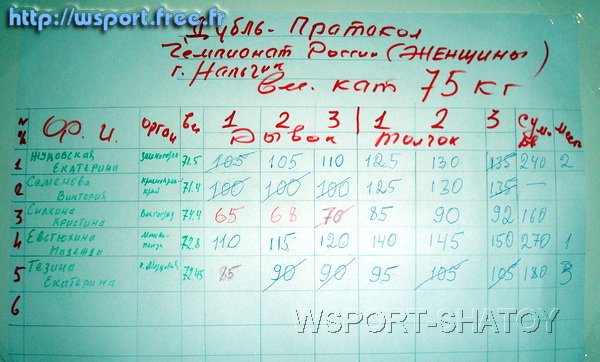 http://wsport.free.fr
Дубль-Пратокол
Чемпионат России (Женщины)
г. Нальчик
вес. кат 75 кг
Ф. И. Орган вес 1 2 3 1 2 3 Сум. Мест
Рывок Толчок
1 Жуковская Екатерина 71.5 105 105 110 125 130 135 240 2
2 Семенова Виктория 71.4 100 100 100 125 130 135 —
3 Силкина Кристина Волгоград 74.4 65 68 70 85 90 92 160
4 Евстюхина Надежда 72.8 110 115 120 140 145 150 270 1
5 Тезина Екатерина 72.45 85 90 90 95 105 105 180 3
6
WSPORT-SHATOY